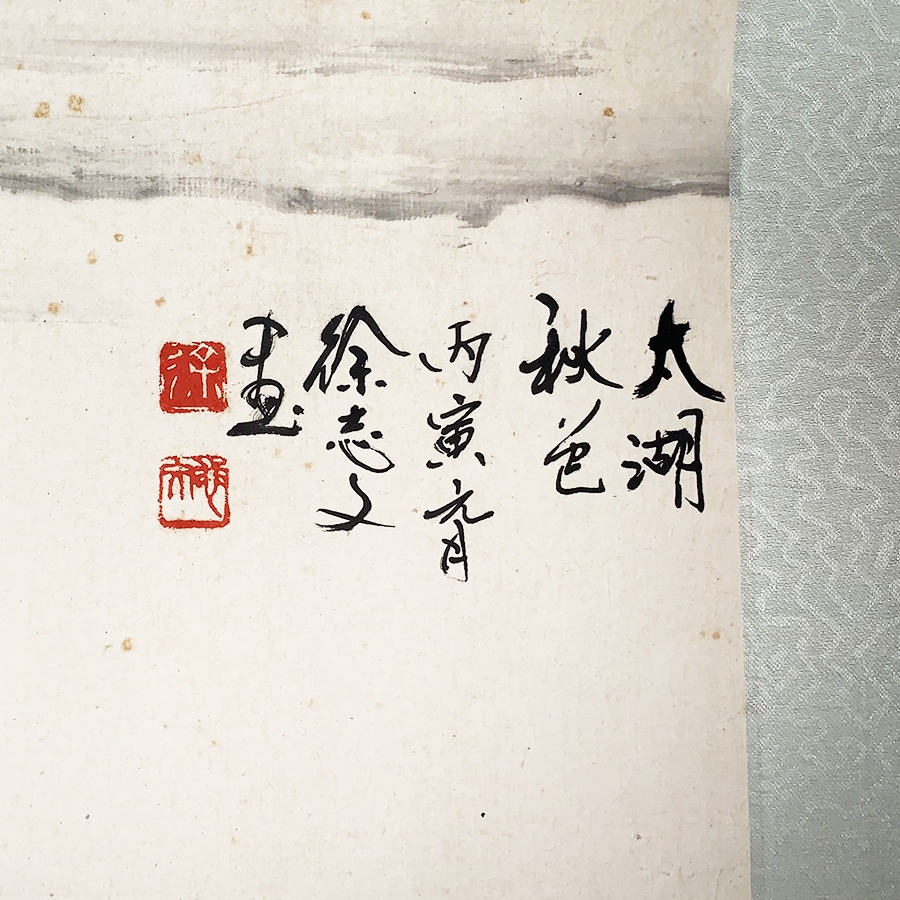 太湖
秋色
丙寅元月
徐志文
画
徐